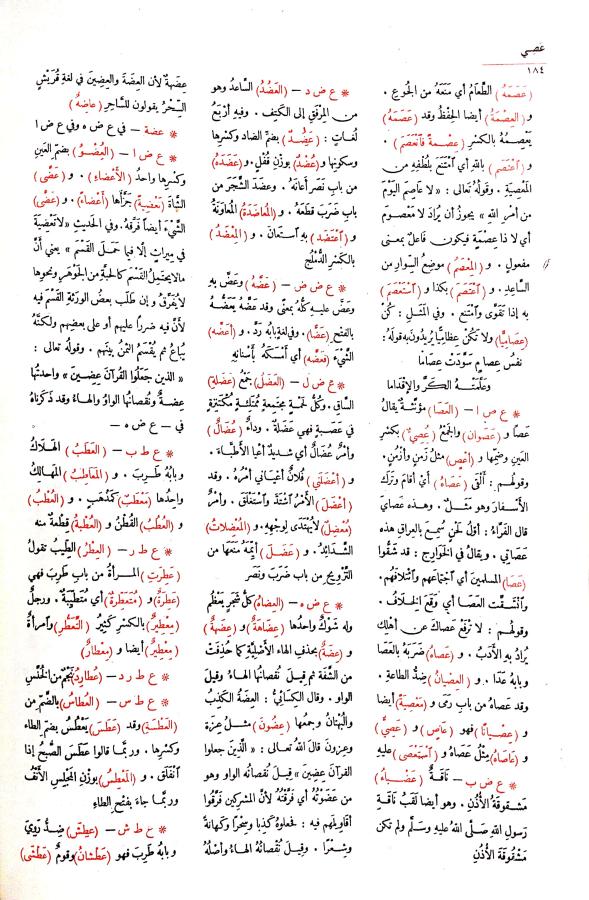 عَصي
١٨٤
(عَصَمَهُ) الطَّعَامُ أي مَنَعَهُ من الجُوعِ .
و (العِصْمَةُ) أيضا الحِفْظُ وقد (عَصَمَهُ)
يَعْصِمُهُ بالكَسْرِ (عِصْمَةً فَٱنْعَصَمَ) .
و (ٱعْتَصَمَ) باللهِ أي ٱمْتَنَعَ بلُطْفِهِ من
المَعْصِيَةِ . وقولُهُ تعالى : « لا عَاصِمَ اليَوْمَ
من أمْرِ اللهِ » يجوزُ أن يُرَادَ لا مَعْصُومَ
أي لا ذا عِصْمَةٍ فيكون فاعلٌ بمعنى
مفعول . و (المِعْصَمُ) موضعُ السِّوارِ من
السَّاعِدِ . و (ٱعْتَصَمَ) بكذا و (ٱسْتَعْصَمَ)
به إذا تَقَوَّى وٱمْتَنَعَ . وفي المَثَلِ : كُنْ
(عِصَامِيًّا) ولا تكُنْ عِظَامِيًّا يُرِيدُونَ به قولَهُ :
نفسُ عِصامٍ سَوَّدَتْ عِصَامَا
وعَلَّمَتْهُ الكَرَّ والإِقْدَامَا
* ع ص ا – (العَصَا) مؤنَّثةٌ يقالُ
عَصًا و (عَصَوَانِ) والجَمْعُ (عُصِيٌّ) بكسْرِ
العَينِ وضَمِّها و (أَعْصٍ) مثلُ زَمَنٍ وأَزْمُنٍ .
وقولُهم : أَلْقَى (عَصَاهُ) أيْ أقامَ وتَرَكَ
الأَسْفارَ وهو مَثَلٌ . وهذه عَصَايَ
قال الفَرَّاءُ : أوّلُ لَحْنٍ سُمِعَ بالعِراقِ هذه
عَصَاتي . ويقالُ في الخَوارِجِ : قد شَقُّوا
(عَصَا) المسلمينَ أي ٱجْتِماعَهم وٱئْتِلافَهم .
وٱنْشَقَّتِ العَصَا أي وَقَعَ الخِلَافُ .
وقولُهم : لا تَرْفَعْ عَصَاكَ عن أهْلِكَ
يُرَادُ بهِ الأَدَبُ . و (عَصَاهُ) ضَرَبَهُ بالعَصَا
وبابُهُ عَدَا . و (العِصْيَانُ) ضِدُّ الطاعةِ .
وقد عَصَاهُ من بابِ رَمَى و (مَعْصِيَةً) أيضا
و (عِصْيَانًا) فهو (عَاصٍ) و (عَصِيٌّ)
و (عَاصَاهُ) مِثْلُ عَصَاهُ و (ٱسْتَعْصَى) عليهِ
* ع ض ب – نَاقَةٌ (عَضْبَاءُ)
مَشقوقةُ الأُذُنِ . وهو أيضا لَقَبُ نَاقَةِ
رَسولِ اللهِ صَلَّى اللهُ عليهِ وسَلَّم ولم تكن
مَشْقُوقَةَ الأُذُنِ
* ع ض د – (العَضُدُ) السَّاعدُ وهو
من المِرْفَقِ إلى الكَتِفِ . وفيهِ أَرْبَعُ
لُغَاتٍ : (عَضُدٌ) بضَمِّ الضادِ وكَسْرِها
وسكونِها و (عُضْدٌ) بوَزْنِ قُفْلٍ . و (عَضَدَهُ)
من بابِ نَصَرَ أعَانَهُ . وعضَدَ الشَّجَرَ من
بابِ ضَرَبَ قطَعَهُ . و (المُعَاضَدَةُ) المُعَاوَنَةُ
و (ٱعْتَضَدَ) بهِ ٱسْتَعانَ . و (المِعْضَدُ)
بالكَسْرِ الدُّمْلُجُ
* ع ض ض – (عَضَّهُ) وعَضَّ بهِ
وعَضَّ عليهِ كلُّهُ بمعنًى وقد عَضَّهُ يَعَضُّهُ
بالفَتحِ (عَضًّا) . وفي لغةٍ بابُهُ رَدَّ . و (أَعَضَّهُ)
الشَّيْءَ (فَعَضَّهُ) أي أمْسَكَهُ بأسْنانِهِ
* ع ض ل – (العَضَلُ) جَمْعُ (عَضَلةِ)
السَّاقِ . وكُلُّ لَحْمَةٍ مجتمِعةٍ مُمْتَلِئةٍ مُكْتَنِزةٍ
في عَصَبةٍ فهي عَضَلةٌ . ودَاءٌ (عُضَالٌ)
وأَمْرٌ عُضَالٌ أي شديدٌ أعْيا الأطِبَّاءَ .
و (أعْضَلَنِي) فلانٌ أعْيانِي أَمْرُهُ . وقد
(أعْضَلَ) الأَمْرُ ٱشْتَدَّ وٱسْتَغْلَقَ . وأَمْرٌ
(مُعْضِلٌ) لا يُهْتَدَى لِوَجهِهِ . و (المُعْضِلاتُ)
الشَّدَائِدُ . و (عَضَلَ) أيِّمَهُ مَنَعَهَا من
التَّزْوِيجِ من بابِ ضَرَبَ ونَصَرَ
* ع ض ه – (العِضاهُ) كلُّ شَجَرٍ يَعْظُمُ
وله شَوْكٌ واحدُها (عِضَاهَةٌ) و (عِضَهَةٌ)
و (عِضَةٌ) بحذفِ الهاءِ الأَصْليَّةِ كما حُذِفَتْ
من الشَّفَةِ ثم قِيلَ نُقصانُها الهاءُ وقيلَ
الواو . وقال الكِسَائيُّ : العِضَةُ الكَذِبُ
والبُهْتانُ وجمعُها (عِضُونَ) مثلُ عِزَةٍ
وعِزونَ قالَ اللهُ تعالى : « الَّذينَ جعلوا
القرآنَ عِضِينَ » قيلَ نُقصانُه الواوُ وهو
من عَضَوْتُهُ أي فَرَّقْتُهُ لأنَّ المشركينَ فَرَّقُوا
أقاويلَهم فيه : فجعلوهُ كَذِبا وسِحْرًا وكَهانةً
وشِعْرًا . وقيلَ نُقْصَانُهُ الهاءُ وأصلُهُ
عِضَهَةٌ لأن العِضَةَ والعِضِينَ في لغةِ قُرَيْشٍ
السِّحْرُ يقولون للسَّاحِرِ (عاضِهٌ)
* عضة – في ع ض ه وفي ع ض ا
* ع ض ا – (العُضْوُ) بضَمِّ العَينِ
وكَسْرِها واحدُ (الأَعْضَاءِ) . و (عَضَّى)
الشَّاةَ (تَعْضِيَةً) جَزَّأَهَا (أَعْضَاءً) . و (عَضَّى)
الشَّيْءَ أيضًا فَرَّقهُ . وفي الحَديثِ « لا تَعْضِيَةَ
في مِيرَاثٍ إلَّا فيما حَمَلَ القَسْمَ » يعني أنَّ
ما لا يحتَمِلُ القَسْمَ كالحَبَّةِ من الجَوْهَرِ ونحوِها
لا يُفَرَّقُ و إن طَلَبَ بعضُ الوَرَثةِ القَسْمَ فيهِ
لأنَّ فيه ضررًا عليهم أو على بعضِهم ولكنَّهُ
يُبَاعُ ثم يُقْسَمُ الثمنُ بينَهم . وقولُهُ تعالى :
« الذين جَعَلُوا القُرآنَ عِضِينَ » واحدتُها
عِضَةٌ ونُقصانُها الواوُ والهاءُ وقد ذَكَرناهُ
في – ع ض ه –
* ع ط ب – (العَطَبُ) الهَلَاكُ
وبابُهُ طَرِبَ . و (المَعَاطِبُ) المَهَالِكُ
واحدُها (مَعْطَبٌ) كَمَذْهَبٍ . و (العُطْبُ)
و (العُطُبُ) القُطْنُ و (العُطْبةُ) قِطعةٌ منه
* ع ط ر – (العِطْرُ) الطِّيبُ تقولُ
(عَطِرَتِ) المَرأةُ من بابِ طَرِبَ فهي
(عَطِرَةٌ) و (مُتَعَطِّرَةٌ) أي مُتَطَيِّبةٌ . ورجلٌ
(مِعْطِيرٌ) بالكسْرِ كَثيرُ (التَّعَطُّرِ) وٱمرأةٌ
(مِعْطِيرٌ) أيضا و (مِعْطَارٌ)
* ع ط ر د – (عُطارِدُ) نَجْمٌ من الخُنَّسِ
* ع ط س – (العُطَاسُ) بالضَّمِّ من
(العَطْسَةِ) وقد (عَطَسَ) يَعْطُسُ بضم الطاء
وكسرِها . وربَّما قالوا عَطَسَ الصُّبحُ إذا
ٱنْفَلَقَ . و (المَعْطِسُ) بوَزْنِ المَجْلِسِ الأَنْفُ
وربما جاءَ بفَتْحِ الطاءِ
* ع ط ش – (عَطِشَ) ضِدُّ رَوِيَ
وبابُهُ طَرِبَ فهو (عَطْشانُ) وقَومٌ (عَطْشَى)